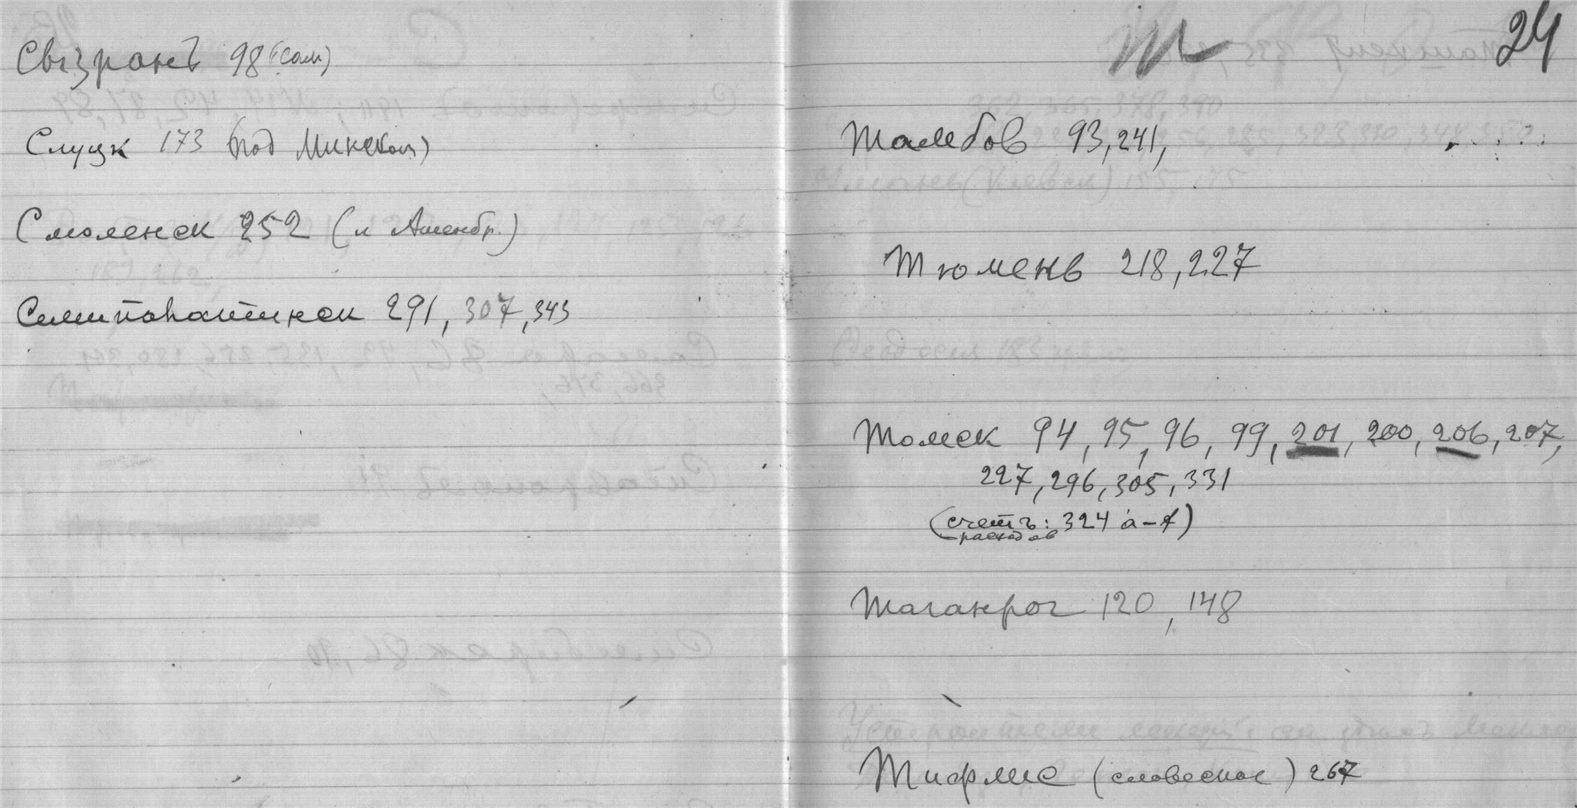 Сызрань 98 (Сам)
Слуцк 173 (под Минском)
Смоленск 252
Семипалатинск 291, 307, 343
Т 24
Тамбов 93, 241,
Тюмень 218, 227
Томск 94, 95, 96, 99, 201, 200, 206, 207,
227, 296, 305, 331
(счетъ: 324 а-
расходов
Таганрог 120, 148
Тифлис (словесное) 267